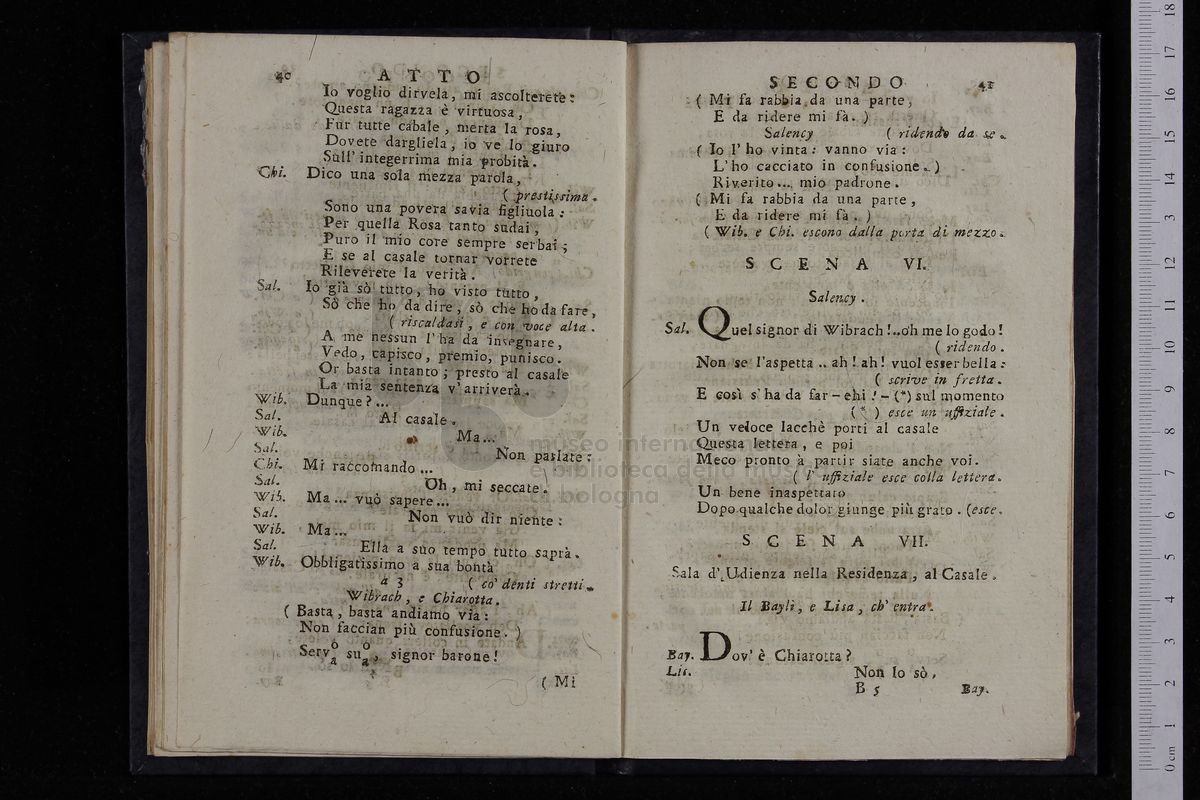 40 ATTO
Io voglio dirvela, mi ascolterete:
Questa ragazza è virtuosa,
Fur tutte cabale, merta la rosa,
Dovete dargliela, io ve lo giuro
Sull' integerrima mia probità.
Chi. Dico una sola mezza parola,
( prestissima.
Sono una povera savia figliuola:
Per quella Rosa tanto sudai,
Puro il mio core sempre serbai;
E se al casale tornar vorrete
Rileverete la verità.
Sal. Io già sò tutto, ho visto tutto,
Sò che ho da dire, sò che ho da fare,
( riscaldasi, e con voce alta.
A me nessun l'ha da insegnare,
Vedo, capisco, premio, punisco.
Or basta intanto; presto al casale
La mia sentenza v'arriverà.
Wib. Dunque?...
Sal. Al casale.
Wib. Ma...
Sal. Non parlate:
Chi. Mi raccomando...
Sal. Oh, mi seccate.
Wib. Ma... vuò sapere...
Sal. Non vuò dir niente:
Wib. Ma...
Sal. Ella a suo tempo tutto saprà.
Wib. Obbligatissimo a sua bontà
a 3 ( co' denti stretti.
Wibrach, e Chiarotta.
( Basta, basta andiamo via:
Non faccian più confusione. )
Serv o a su o a, signor barone!
( Mi
SECONDO 41
( Mi fa rabbia da una parte,
E da ridere mi fà. )
Salency ( ridendo da se.
( Io l'ho vinta: vanno via:
L'ho cacciato in confusione. )
Riverito... mio padrone.
( Mi fa rabbia da una parte,
E da ridere mi fà. )
( Wib. e Chi. escono dalla porta di mezzo.
SCENA VI.
Salency.
Sal. Quel signor di Wibrach!..oh me lo godo!
( ridendo.
Non se l'aspetta .. ah! ah! vuol esser bella:
( scrive in fretta.
E così s'ha da far - ehi! - (*) sul momento
( * ) esce un uffiziale.
Un veloce lacchè porti al casale
Questa lettera, e poi
Meco pronto à partir siate anche voi.
( l' uffiziale esce colla lettera.
Un bene inaspettato
Dopo qualche dolor giunge più grato. (esce.
SCENA VII.
Sala d'Udienza nella Residenza, al Casale.
Il Baylì, e Lisa, ch' entra.
Bay. Dov' è Chiarotta?
Lis. Non lo sò,
B 5 Bay.
museo internazionale
e biblioteca della musica
di bologna
0 cm 1 2 3 4 5 6 7 8 9 10 11 12 13 14 15 16 17 18